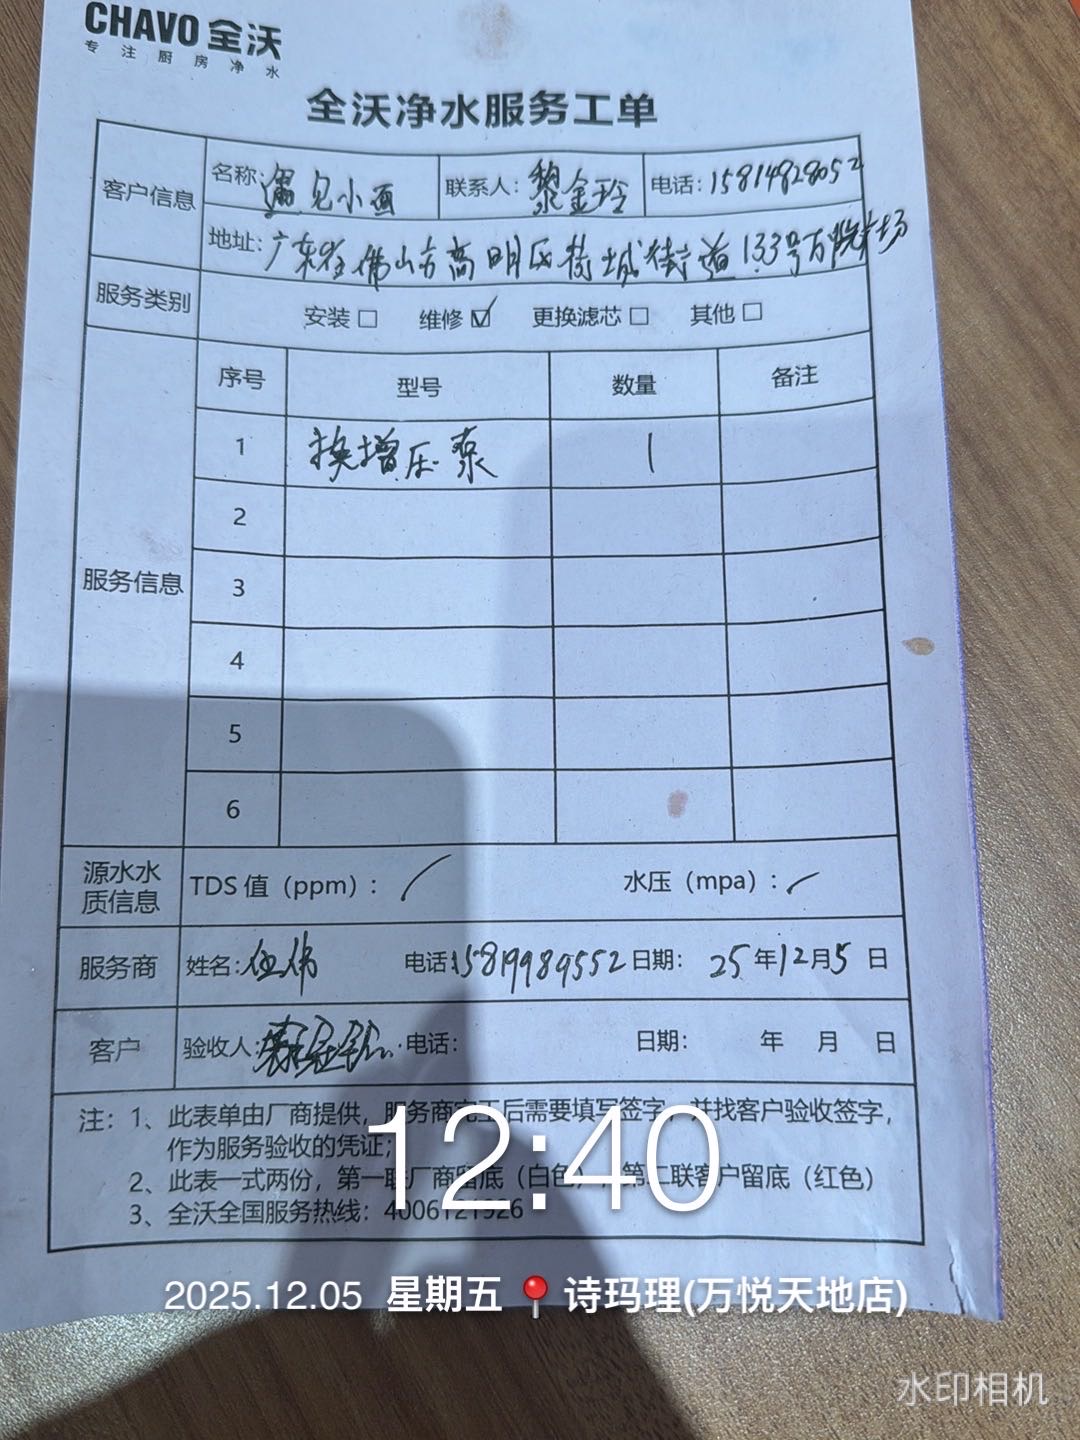 CHAVO 全沃
专注厨房净水
全沃净水服务工单
客户信息 名称：遇见小面 联系人：黎金玲 电话：15814828052
地址：广东省佛山市高明区荷城街道133号万悦广场
服务类别 安装☐ 维修☑ 更换滤芯☐ 其他☐
服务信息 序号 型号 数量 备注
1 换增压泵 1
2
3
4
5
6
源水水质信息 TDS 值（ppm）：/ 水压（mpa）：/
服务商 姓名：伍伟 电话：15819989552 日期：25年12月5日
客户 验收人： 电话： 日期： 年 月 日
注：1、此表单由厂商提供，服务商完工后需要填写签字，并找客户验收签字，
作为服务验收的凭证；
2、此表一式两份，第一联厂商留底（白色），第二联客户留底（红色）
3、全沃全国服务热线：4006121926
12:40
2025.12.05 星期五 诗玛理(万悦天地店)
水印相机